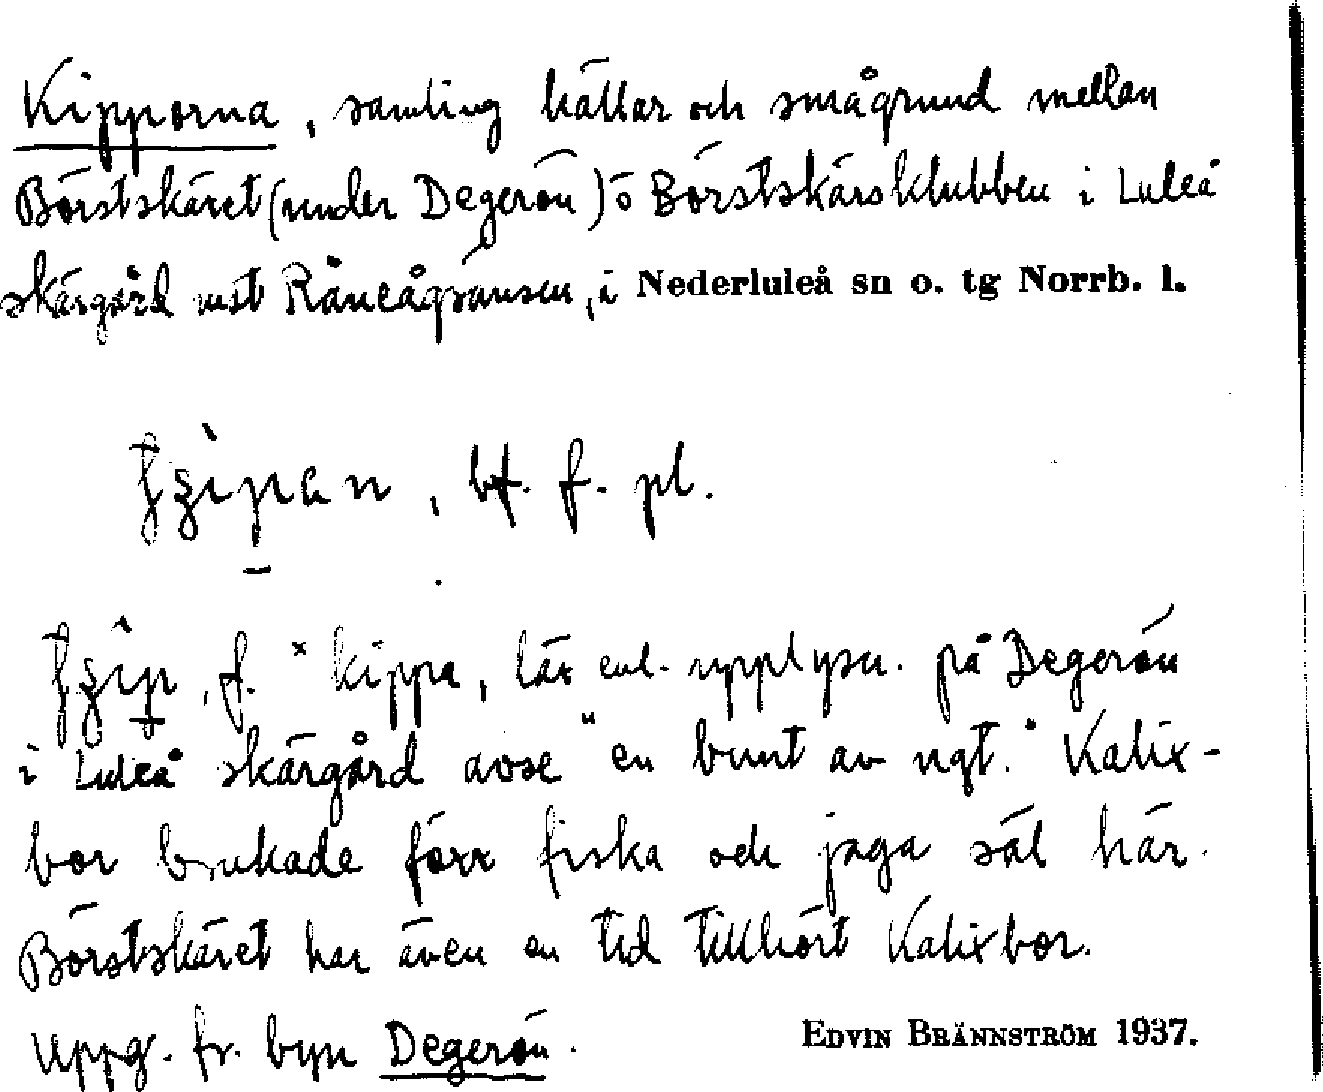 Kipporna, samling hällar och smågrund mellan
Börstskäret (under Degerön) ö Börstskärsklubben i Luleå
skärgård mot Råneågränsen, i Nederluleå sn o. tg Norrb. l.
bf. f. pl.
f. * kippa, lär enl. upplysn. på Degerön
i Luleå skärgård avse "en bunt av ngt." Kalix-
bor brukade förr fiska och jaga säl här.
Börstskäret har även en tid tillhört Kalixbor.
Uppg. fr. byn Degerön.
EDVIN BRÄNNSTRÖM 1937.